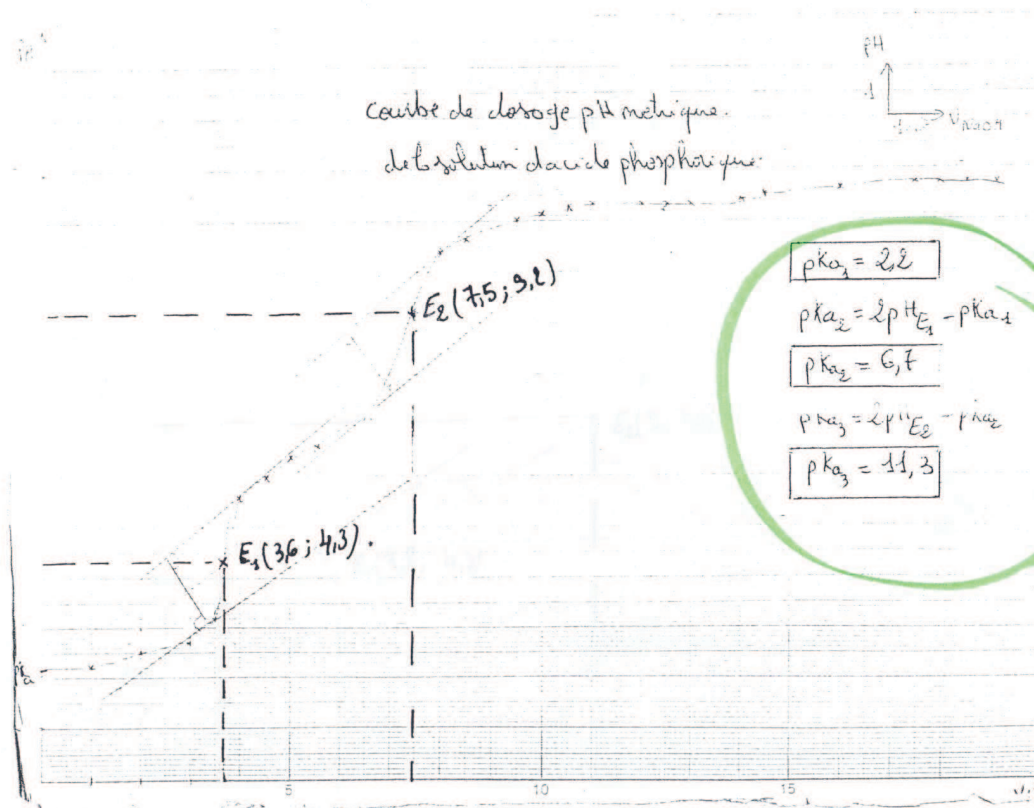 pH
1
V NaOH
courbe de dosage pH métrique.
de la solution d'acide phosphorique.
E2 (7,5 ; 9,2)
pKa1 = 2,2
pKa2 = 2pHE1 - pKa1
pKa2 = 6,7
pKa3 = 2pHE2 - pKa2
pKa3 = 11,3
E1 (3,6 ; 4,3).
5
10
15